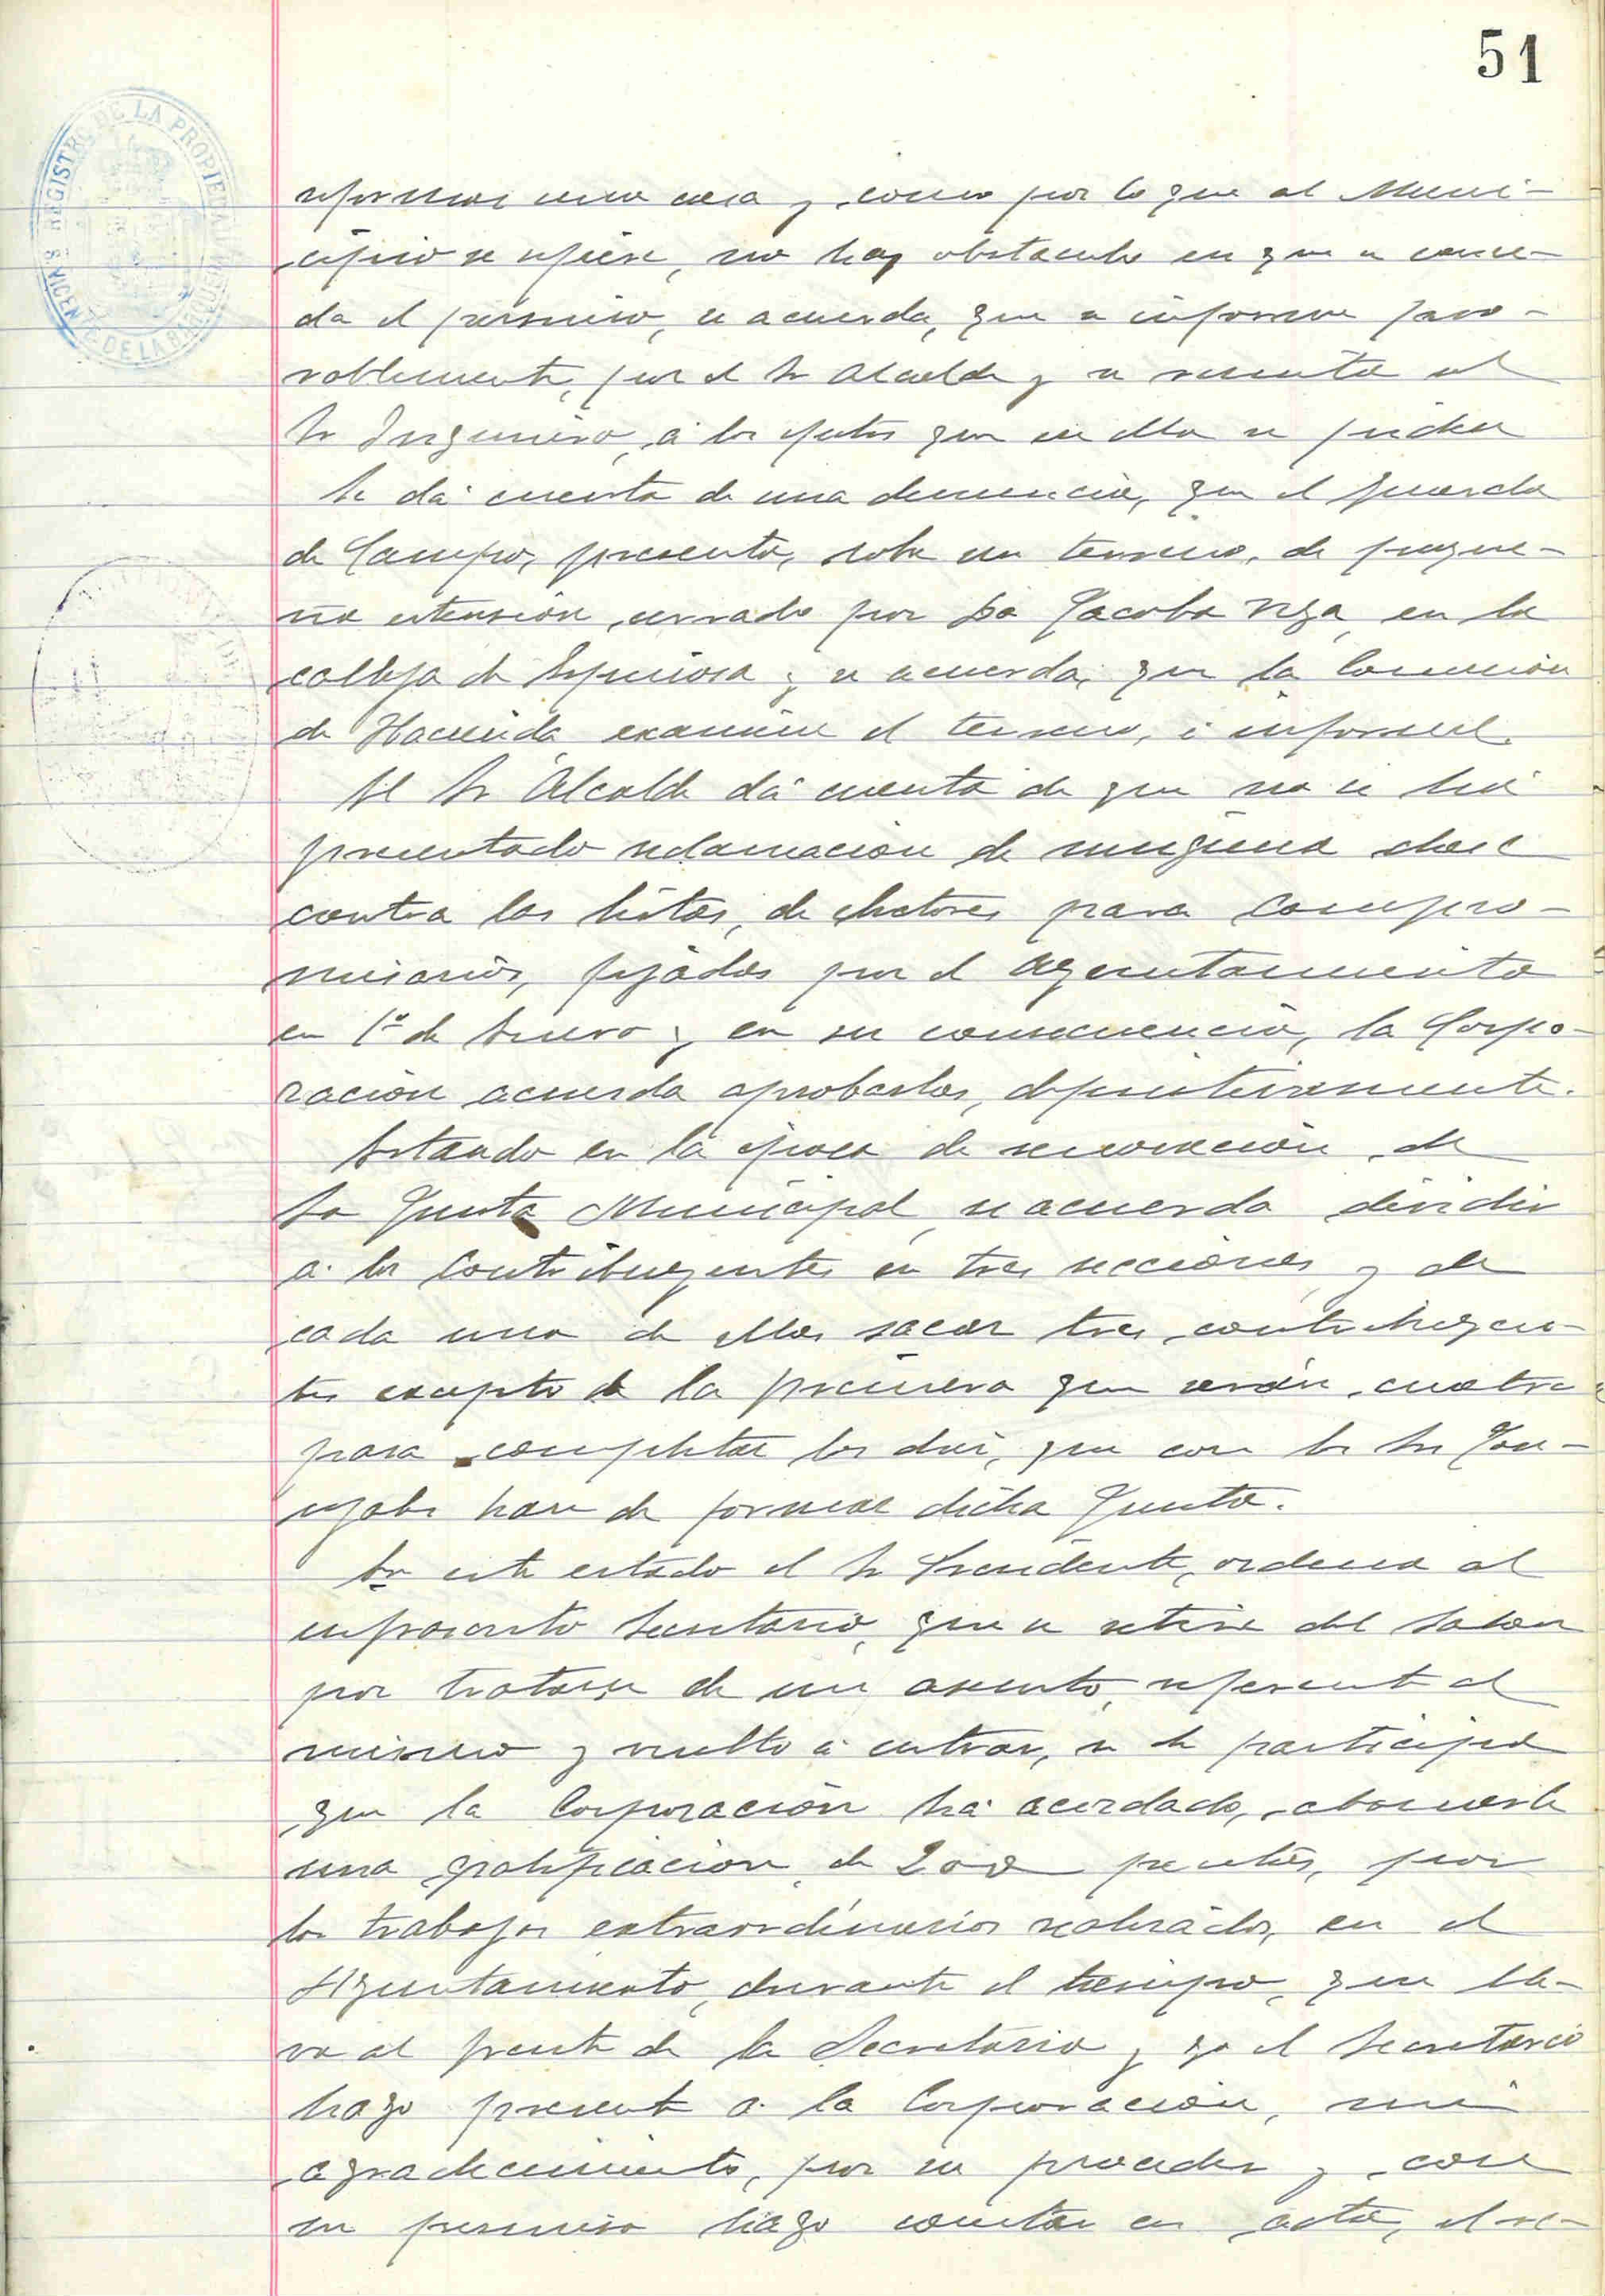 51
REGISTRO DE LA PROPIEDAD
S. VICENTE DE LA BARQUERA
reformar una casa y como por lo que al Muni-
cipio se refiere, no hay obstaculo en que se conce-
da el permiso, se acuerda, que se informe favo-
rablemente, por el Sr Alcalde y se remita al
Sr Ingeniero, á los efectos que en ella se piden
Se dá cuenta de una denuncia, que el guarda
de Campo, presenta, sobre un terreno, de peque-
ña extensión, cerrado por Da Jacoba Vega, en la
calleja de Espinosa y se acuerda, que la Comisión
de Hacienda examine el terreno, é informe.
El Sr Alcalde dá cuenta de que no se há
presentado reclamación de ninguna clase
contra las listas, de electores para Compro-
misarios, fijadas por el Ayuntamiento
en 1º de Enero y en su consecuencia, la Corpo-
ración acuerda aprobarlas, definitivamente.
Estando en la época de renovación de
la Junta Municipal se acuerda dividir
á los Contribuyentes en tres secciones y de
cada una de ellas sacar tres contribuyen-
tes excepto de la primera que serán cuatro
para completar los diez, que con los Sres Con-
cejales han de formar dicha Junta.
En este estado el Sr Presidente, ordena al
infrascrito Secretario, que se retire del Salon
por tratarse de un asunto referente al
mismo y vuelto á entrar, se le participa
que la Corporación há acordado, abonarle
una gratificación de 200 pesetas, por
los trabajos extraordinarios realizados, en el
Ayuntamiento, durante el tiempo, que lle-
va al frente de la Secretaria y yo el Secretario
hago presente á la Corporación, mi
agradecimiento, por su proceder y con
su permiso hago constar en acta, el re-